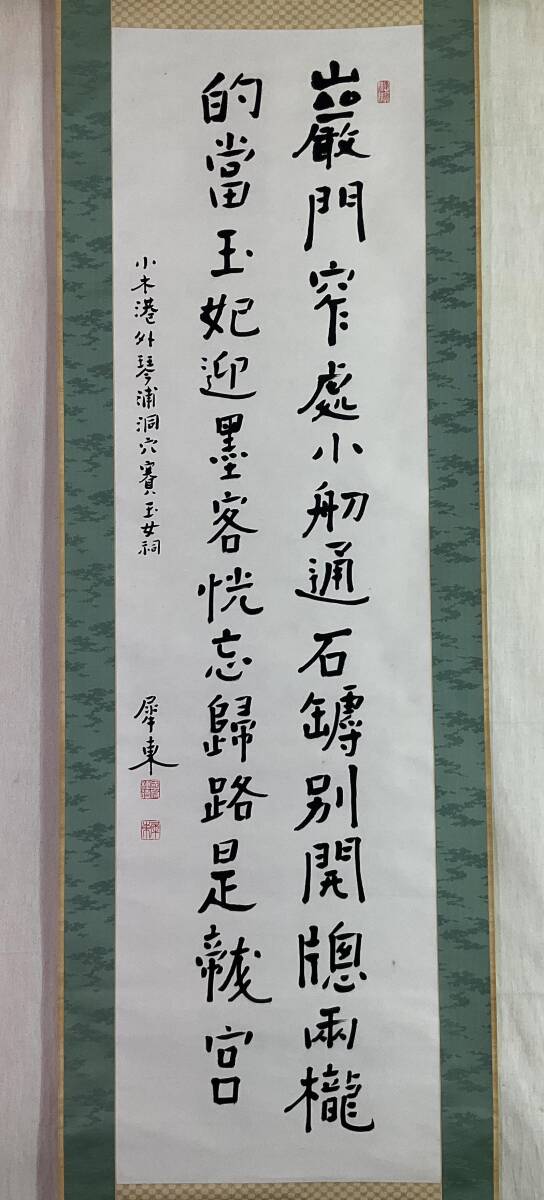 巖門窄處小舠通石罅別開牕兩櫳
的當玉妃迎墨客恍忘歸路是龍宮
小木港外琴浦洞穴賽玉女祠
犀東